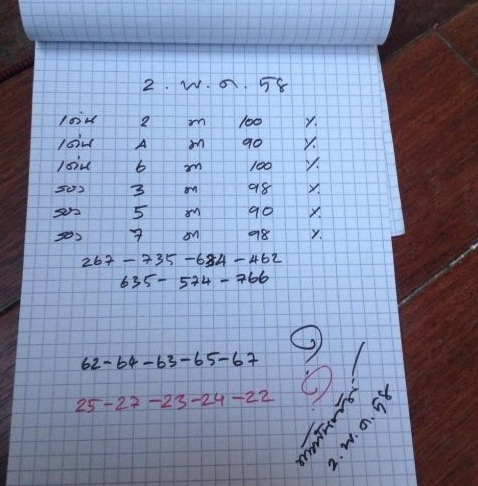 2 . พ.ค. 58
เด่น 2 m 100 %
เด่น 4 m 90 %
เด่น 6 m 100 %
รอง 3 m 98 %
รอง 5 m 90 %
รอง 7 m 98 %
267 - 735 - 684 - 462
635 - 574 - 766
62-64-63-65-67
25-27-23-24-22
2. พ.ค. 58